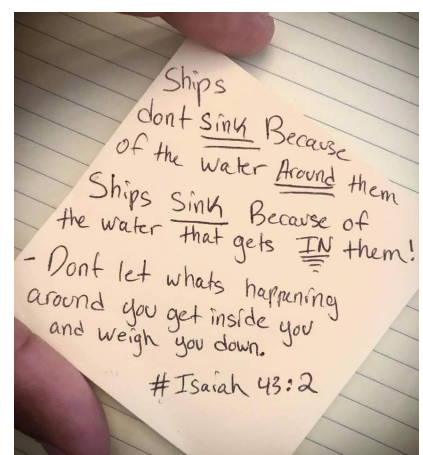 Ships
dont Sink Because
of the water Around them
Ships Sink Because of
the water that gets IN them!
- Dont let whats happening
around you get inside you
and weigh you down.
#Isaiah 43:2